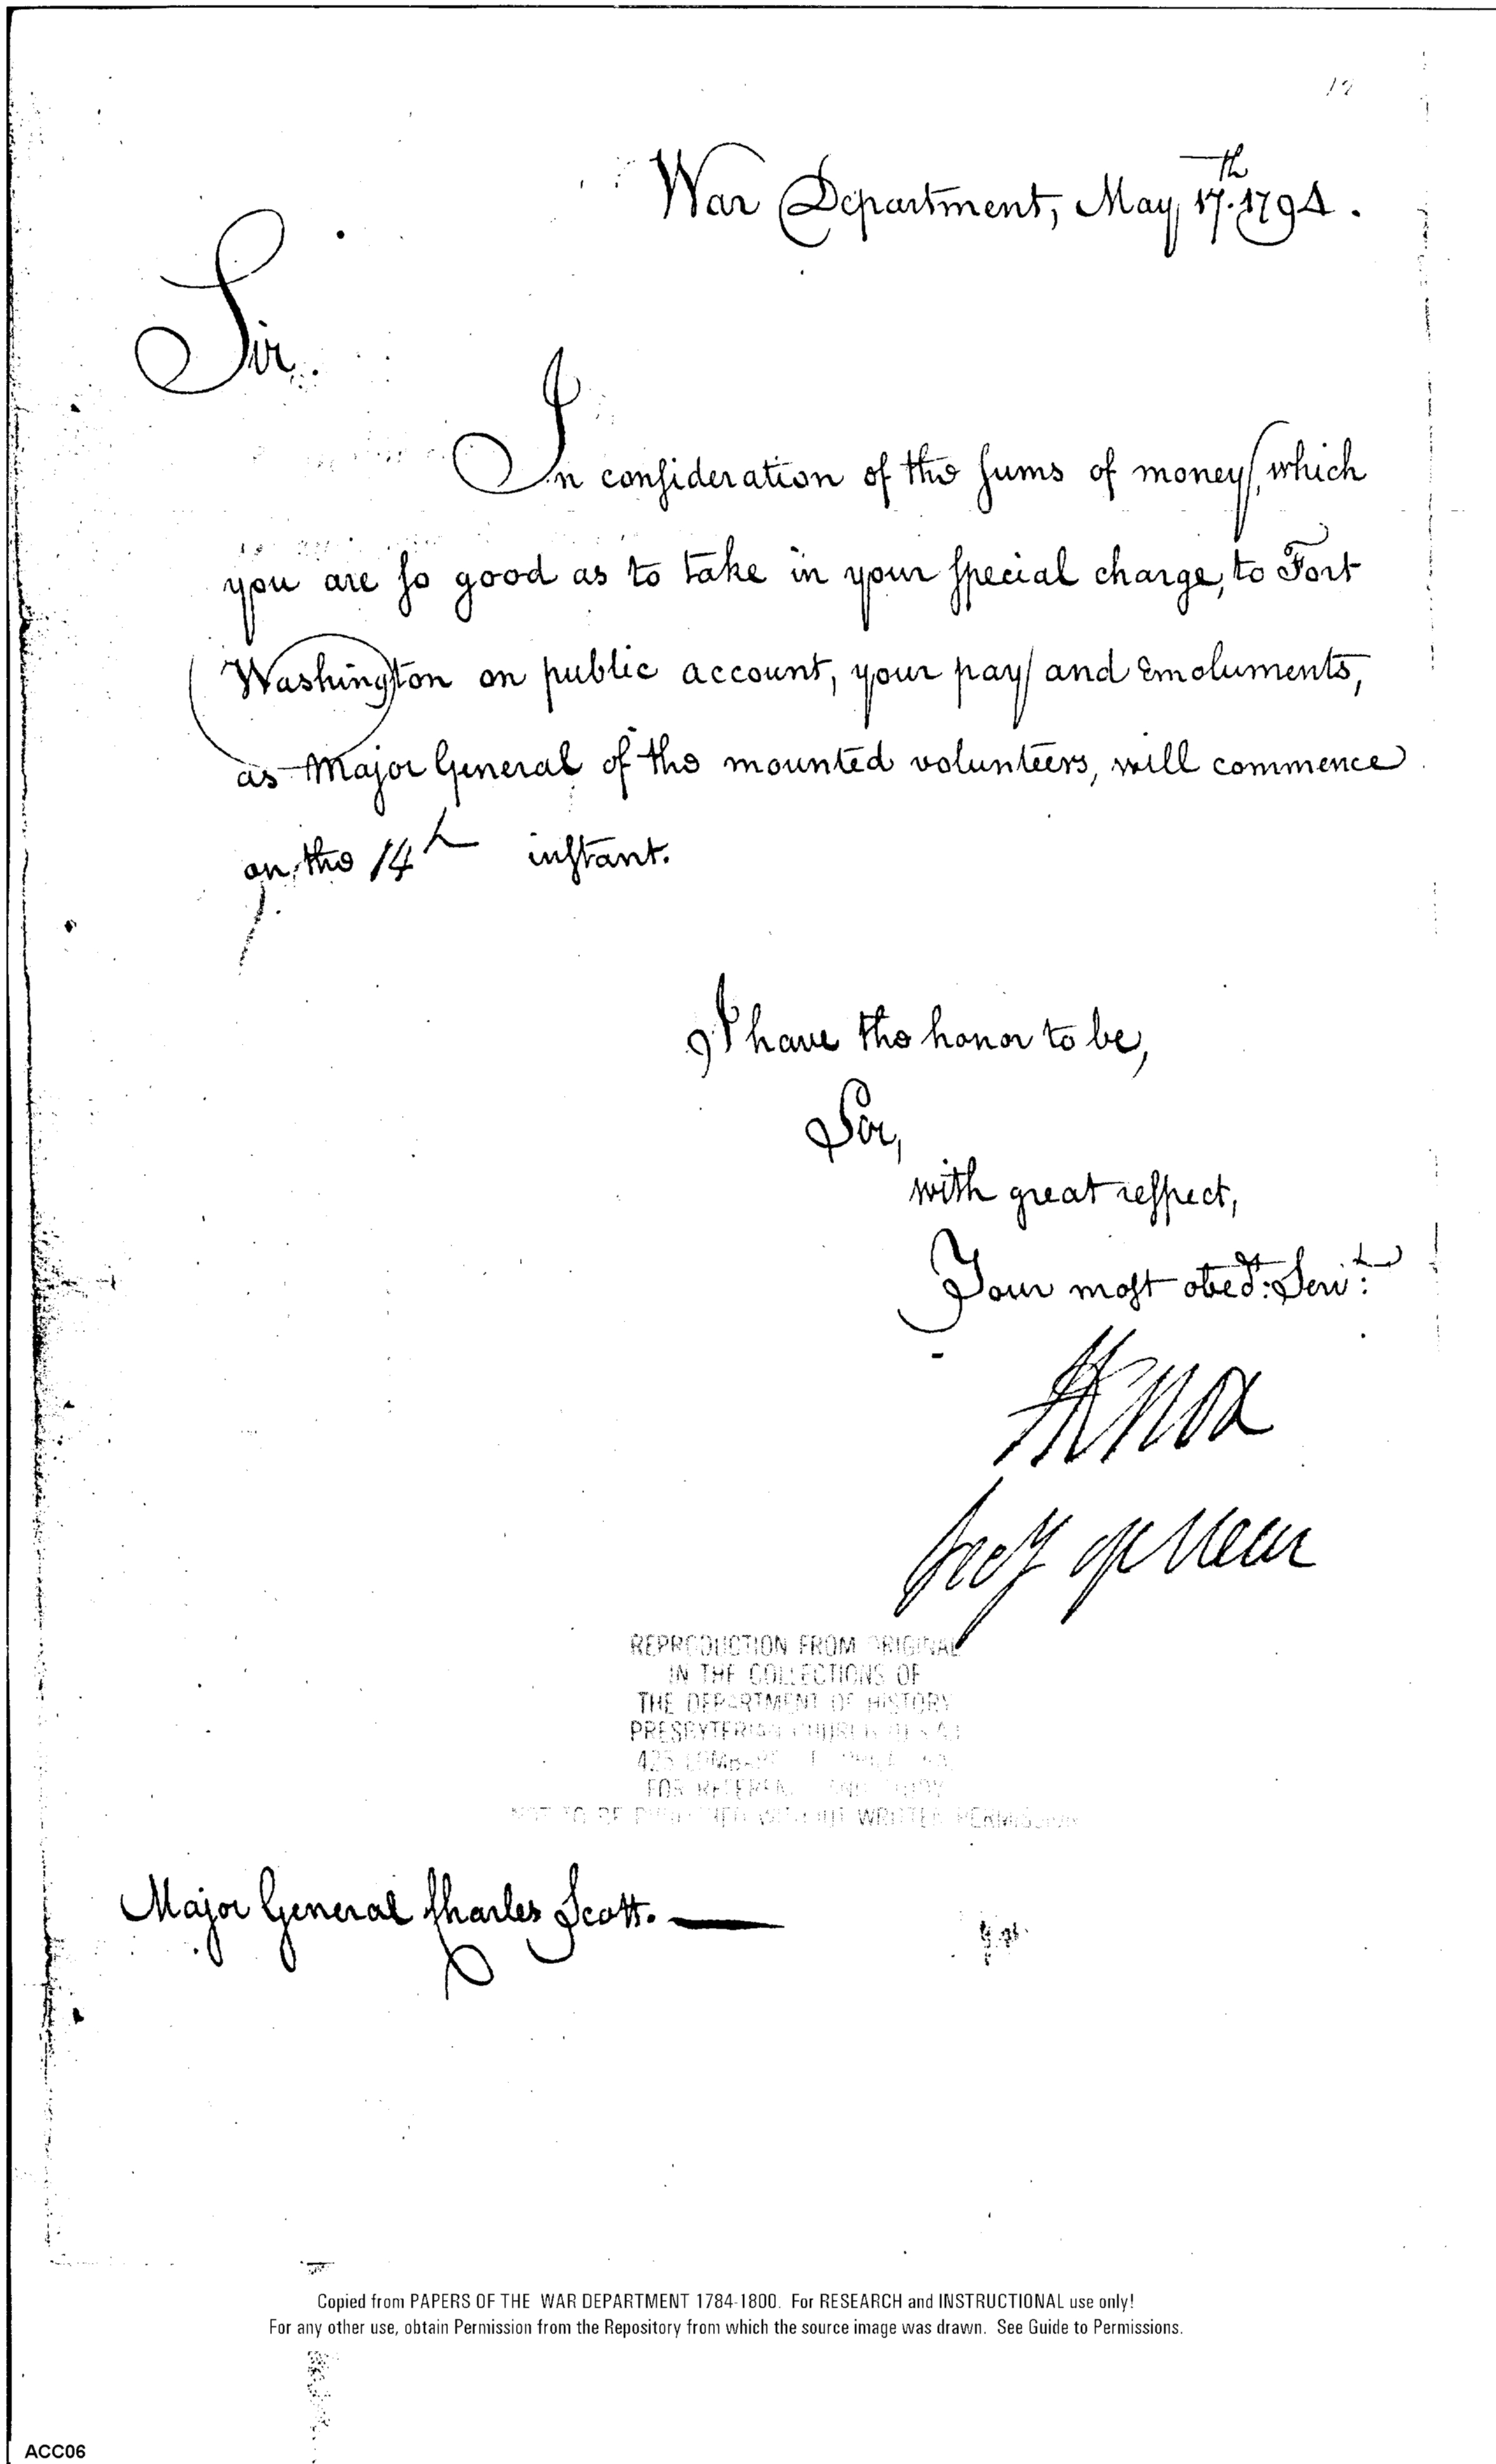 War Department, May 17th. 1794.
Sir.
In conſideration of the ſums of money, which
you are ſo good as to take in your ſpecial charge, to Fort
Washington on public account, your pay and emoluments,
as Major General of the mounted volunteers, will commence
on the 14th inſtant.
I have the honor to be,
Sir,
with great reſpect,
Your moſt obedt: Servt:
HKnox
Secy of War
REPRODUCTION FROM ORIGINAL
IN THE COLLECTIONS OF
THE DEPARTMENT OF HISTORY
PRESBYTERIAN CHURCH
425
FOR
NOT TO BE WITHOUT WRITTEN PERMISSION
Major General Charles Scott.
Copied from PAPERS OF THE WAR DEPARTMENT 1784-1800. For RESEARCH and INSTRUCTIONAL use only!
For any other use, obtain Permission from the Repository from which the source image was drawn. See Guide to Permissions.
ACC06